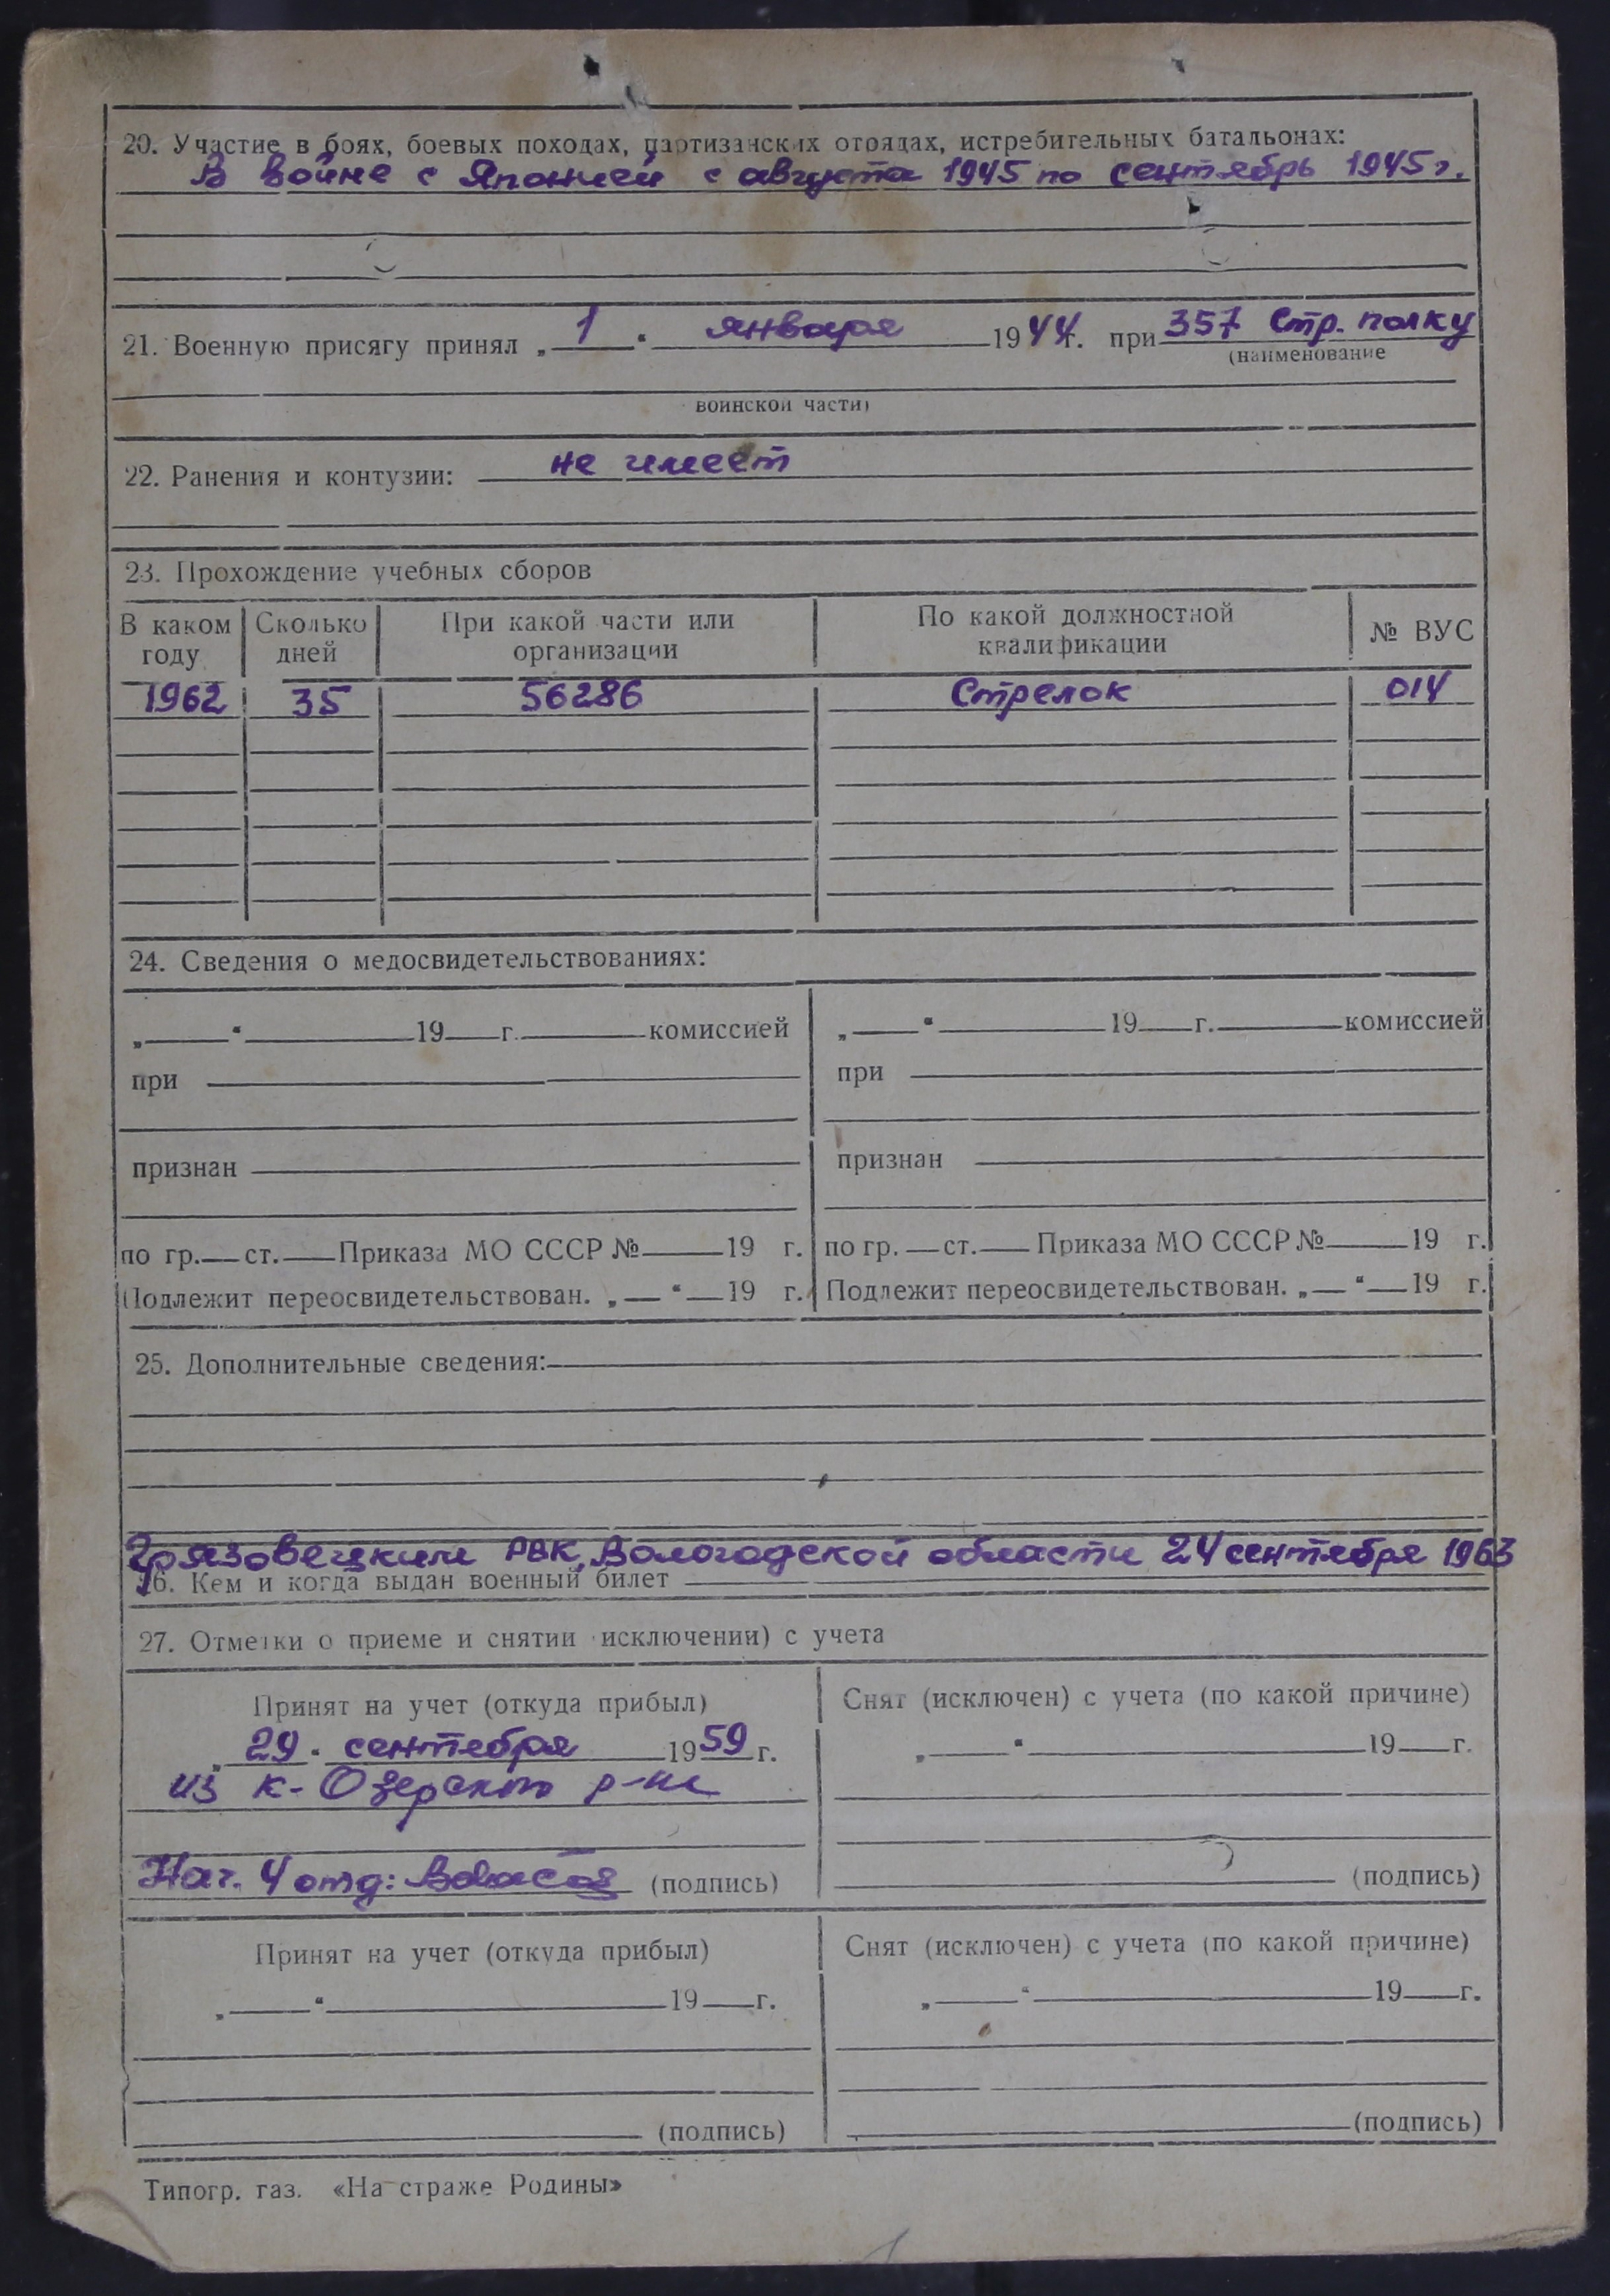 20. Участие в боях, боевых походах, партизанских отрядах, истребительных батальонах:
В войне с Японией с августа 1945 по сентябрь 1945 г.
21. Военную присягу принял „1“ января 1944 г. при 357 Стр. полку
(наименование
воинской части)
22. Ранения и контузии: не имеет
23. Прохождение учебных сборов
В каком году Сколько дней При какой части или организации По какой должностной квалификации № ВУС
1962 35 56286 Стрелок 014
24. Сведения о медосвидетельствованиях:
„ “ 19 г. комиссией „ “ 19 г. комиссией
при при
признан признан
по гр. ст. Приказа МО СССР № 19 г. по гр. ст. Приказа МО СССР № 19 г.
Подлежит переосвидетельствован. „ “ 19 г. Подлежит переосвидетельствован. „ “ 19 г.
25. Дополнительные сведения:
Грязовецким РВК, Вологодской области 24 сентября 1963
26. Кем и когда выдан военный билет
27. Отметки о приеме и снятии исключении) с учета
Принят на учет (откуда прибыл) Снят (исключен) с учета (по какой причине)
„29“ сентября 1959 г. „ “ 19 г.
из К-Озерского р-на
Нач. 4 отд: (подпись) (подпись)
Принят на учет (откуда прибыл) Снят (исключен) с учета (по какой причине)
„ “ 19 г. „ “ 19 г.
(подпись) (подпись)
Типогр. газ. «На страже Родины»